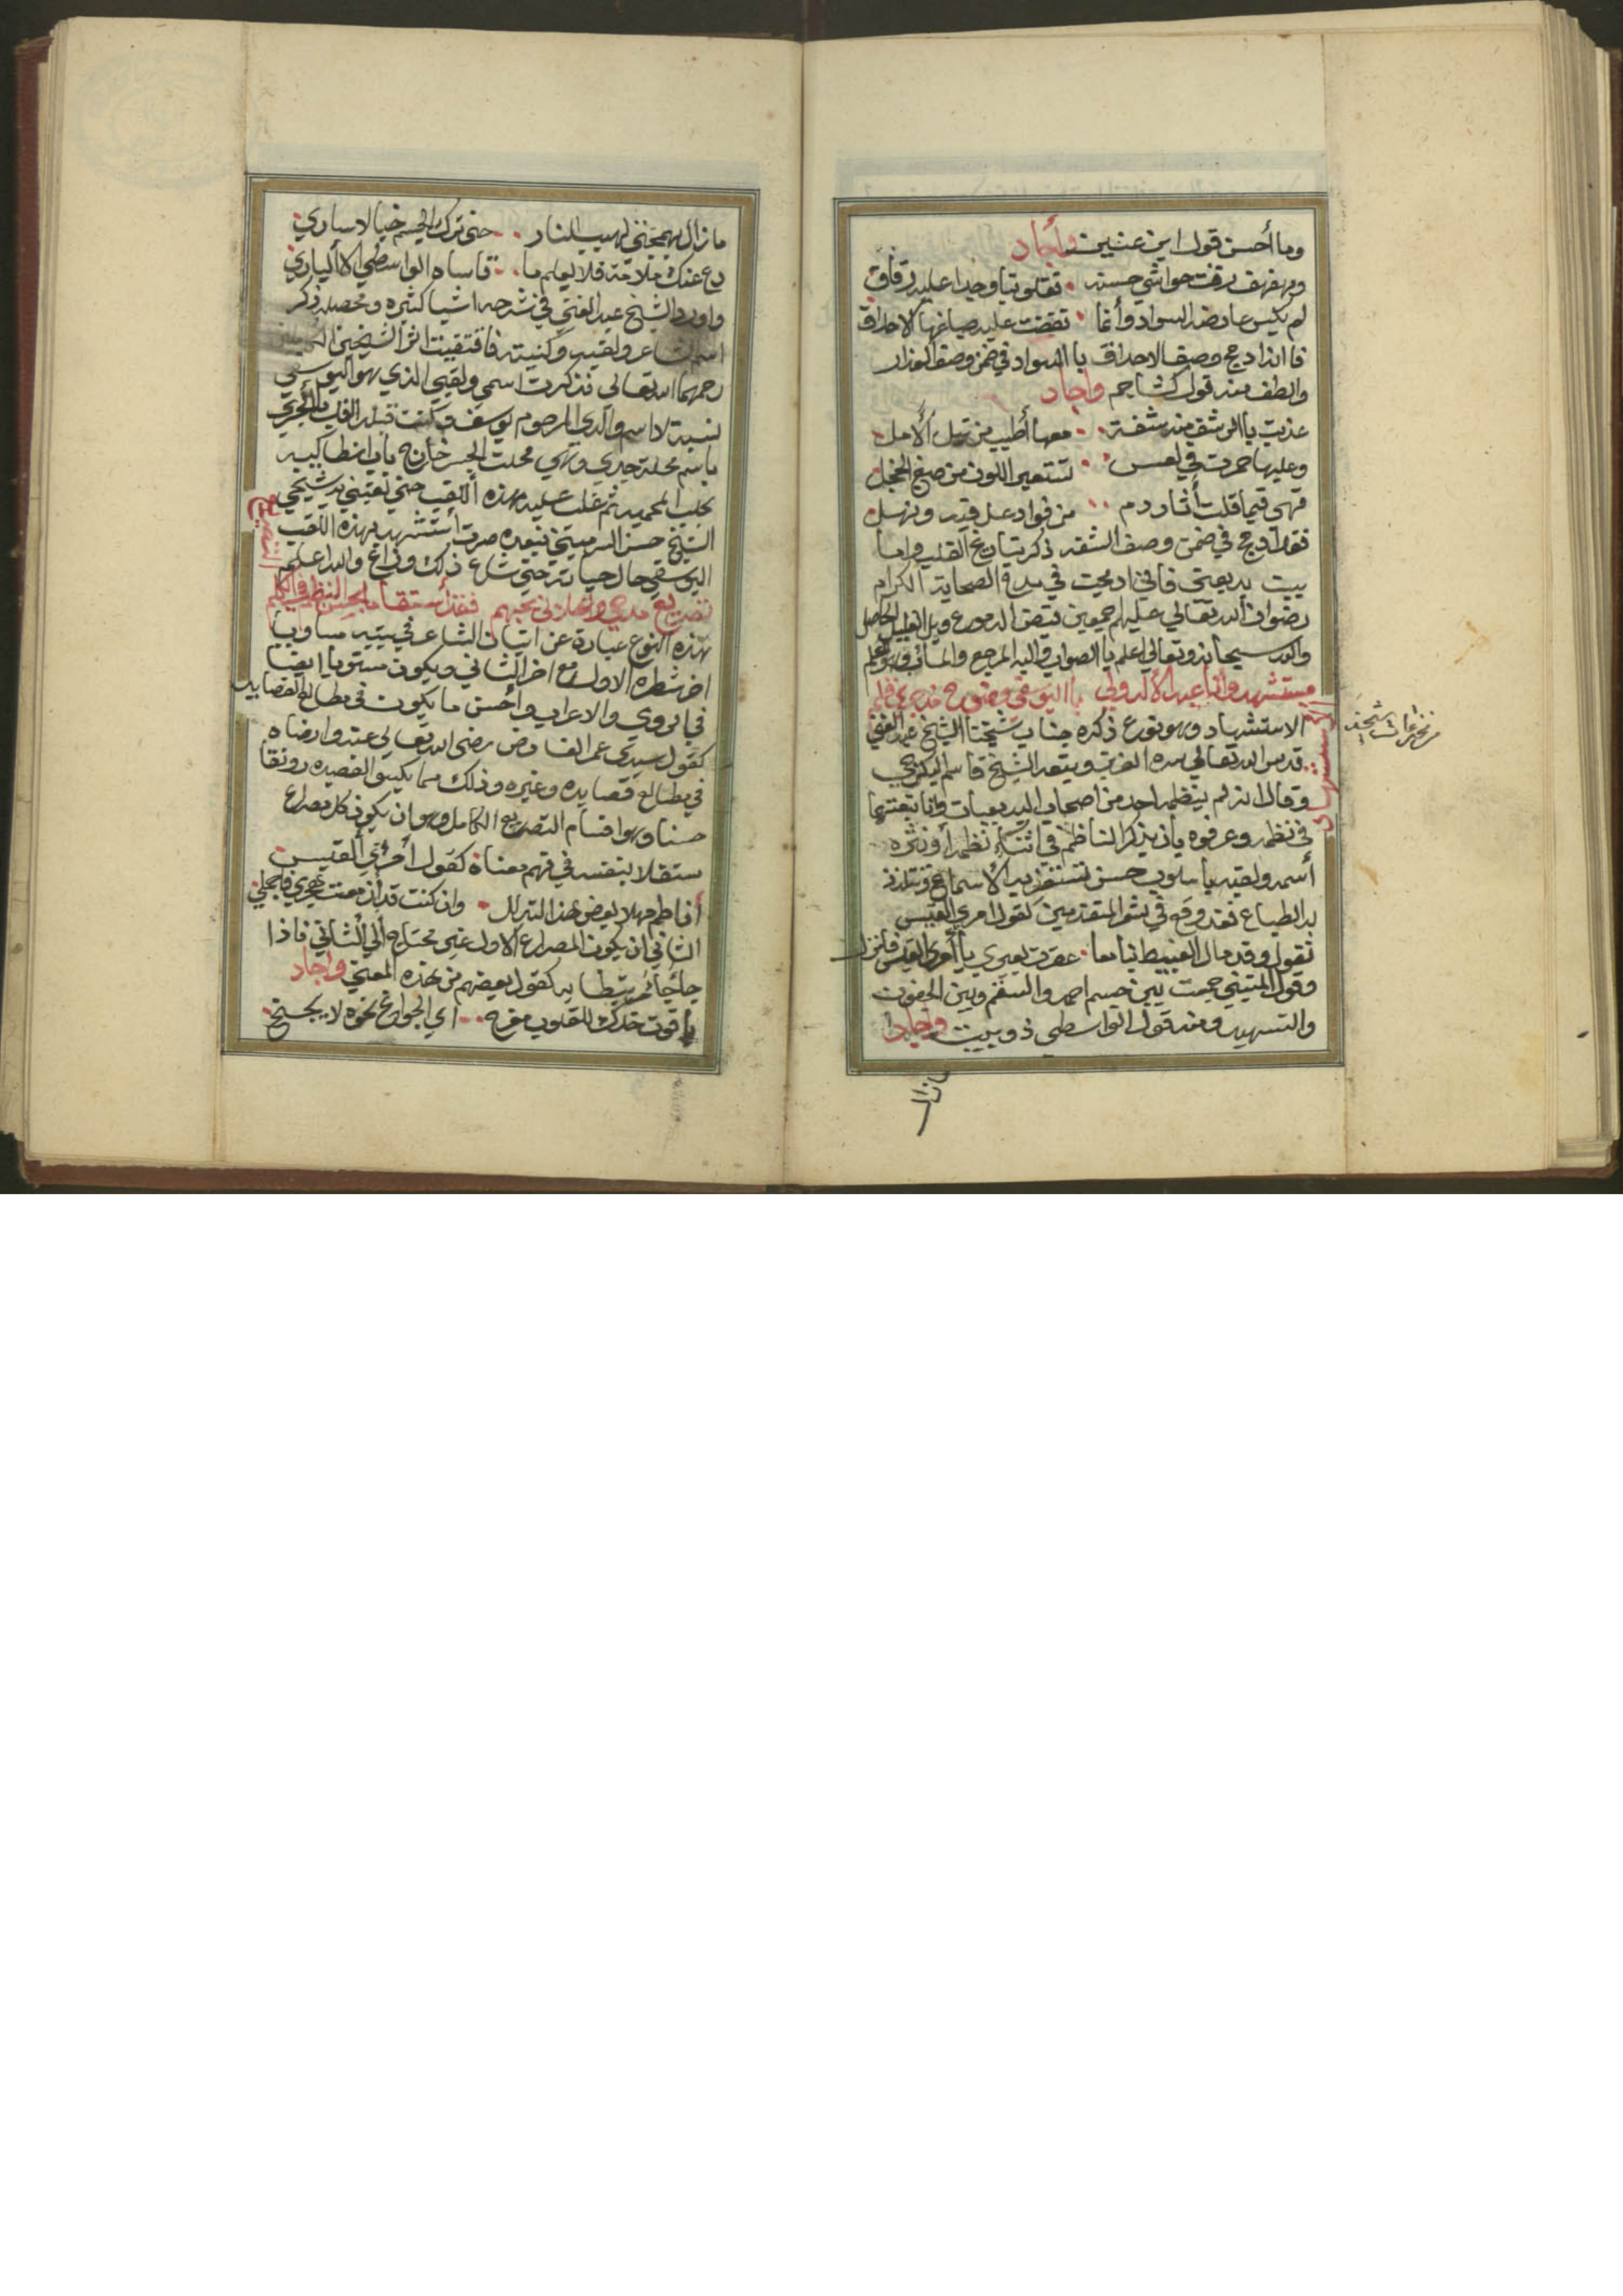 وما أحسن قول ابن عنين وأجاد
ومهفهف رقت حواشي حسنه فقلوبنا وجدا عليه رقاق
لم يكس عارضه السواد وأنما نفضت عليه صباغها الاحداق
فانه ادمج وصف الاحداق باالسواد في ضمن وصف العذار
والطف منه قول كشاجم وأجاد
عذبت باالرشف منه شفة معها أطيب من نيل الأمل
وعليها حمرت في لعس تستعير اللون من صبغ الخجل
فهي فيما قلت أثار دم من فواد عل فيه ونهل
فقد ادمج في ضمن وصف الشفه ذكر القلب واما
بيت بديعتي فاني ادمجت في مدة الصحابة الكرام
رضوان الله تعالي عليهم اجمعين فيض الدموع
والله سبحانه وتعالي اعلم باالصواب واليه المرجع والمأب
مستشهد وانا عبد الأله ولي باليوسفي وضوح
الاستشهاد وهو نوع ذكره جناب شيخنا الشيخ عبد الغني
قدس الله تعالي سره العزيز وبتعه الشيخ قاسم البكرجي
وقال انه لم ينظمه احد من اصحاب البديعيات وانا تبعتهما
في نظمه وعرفوه بأن يذكر الناظم في اثناء نظمه أو نثره
أسمه ولقبه باسلوب حسن تستقر به الأسماع وتتلذذ
به الطباع فقد وقع في شعر المتقدمين كقول امري القيس
تقول وقد مال الغبيط بنا معا عقرت بعيري ياأمرئ القيس فانزل
وقول المتنبي جمعت بين جسم احمد والسقم وبين الجفون
والتسهيد ومنه قول الواسطي ذو بيت وأجاد
مازال
الاستشهاد
مازال بمهجتي لهيب النار حتى ترك الجسم خيالا ساري
دع عنك ملامة فلا يعلم ما قاساه الواسطي الا الباري
واورد الشيخ عبد الغني في شرحه اشيا كثيره ومحصله ذكر
اسم الشاعر ولقبه وكنيته فاقتفيت اثر الشيخين
رحمهما الله تعالى فذكرت اسمي ولقبي الذي هو اليوسفي
نسبة لاسم والدي المرحوم يوسف وكنت قبله القب
باسم محلة جدي وهي محلت الجسر خارج باب انطاكيه
بحلب المحميه ثم غلب عليه هذه اللقب حتى لقبني به شيخي
الشيخ حسن السرميني فبعده صرت أستشهد بهذه اللقب
اليوسفي حال حياته حتى شاع ذلك وذاع والله اعلم
التصريع
تصريع مدحي وانغزلي بحبهم فقد استقاما بحسن النظم والكلم
هذه النوع عبارة عن اتيان الشاعر في بيته مساويا
اخر شطره الاول مع اخر الثاني ويكون مستويا ايضا
في الروي والاعراب وأحسن ما يكون في مطالع القصايد
كقول سيدي عمر الفارض رضى الله تعالي عنه وارضاه
في مطالع قصايده وغيره وذلك مما يكسو القصيده رونقا
حسنا وهو اقسام التصريع الكامل وهو ان يكون كل مصراع
مستقلا بنفسه في فهم معناه كقول أمرئي القيس
أفاطم مهلا بعض هذا التدلل وان كنت قد أزمعت هجري فاجملي
الثاني ان يكون المصراع الاول غير محتاج الي الثاني فاذا
جأجأ مرتبطا به كقول بعضهم من هذه المعنى واجاد
ياقوت خدك للقلوب مفرح اي الجوارح نحوه لا يجنح